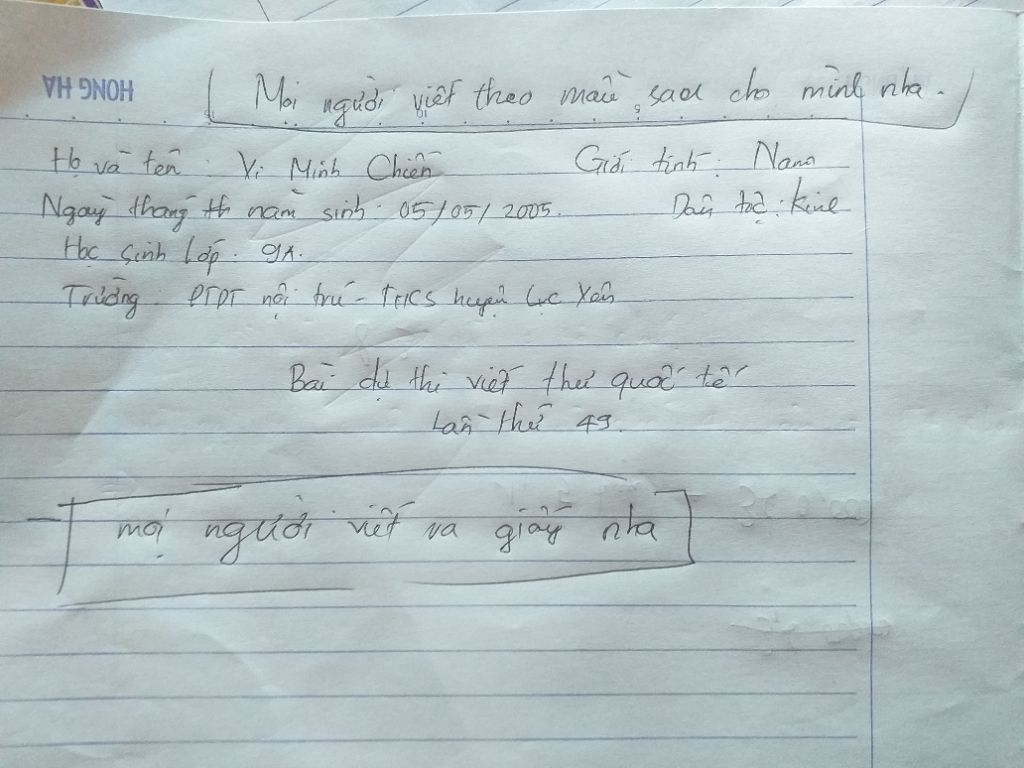 HONG HA
Mọi người viết theo mẫu sau cho mình nha.
Họ và tên : Vi Minh Chiến Giới tính : Nam
Ngày tháng th năm sinh : 05/05/2005. Dân tộc : Kinh
Học sinh lớp : 9A.
Trường : PTDT nội trú - THCS huyện Lục Yên
Bài dự thi viết thư quốc tế
Lần thứ 49.
mọi người viết ra giấy nha